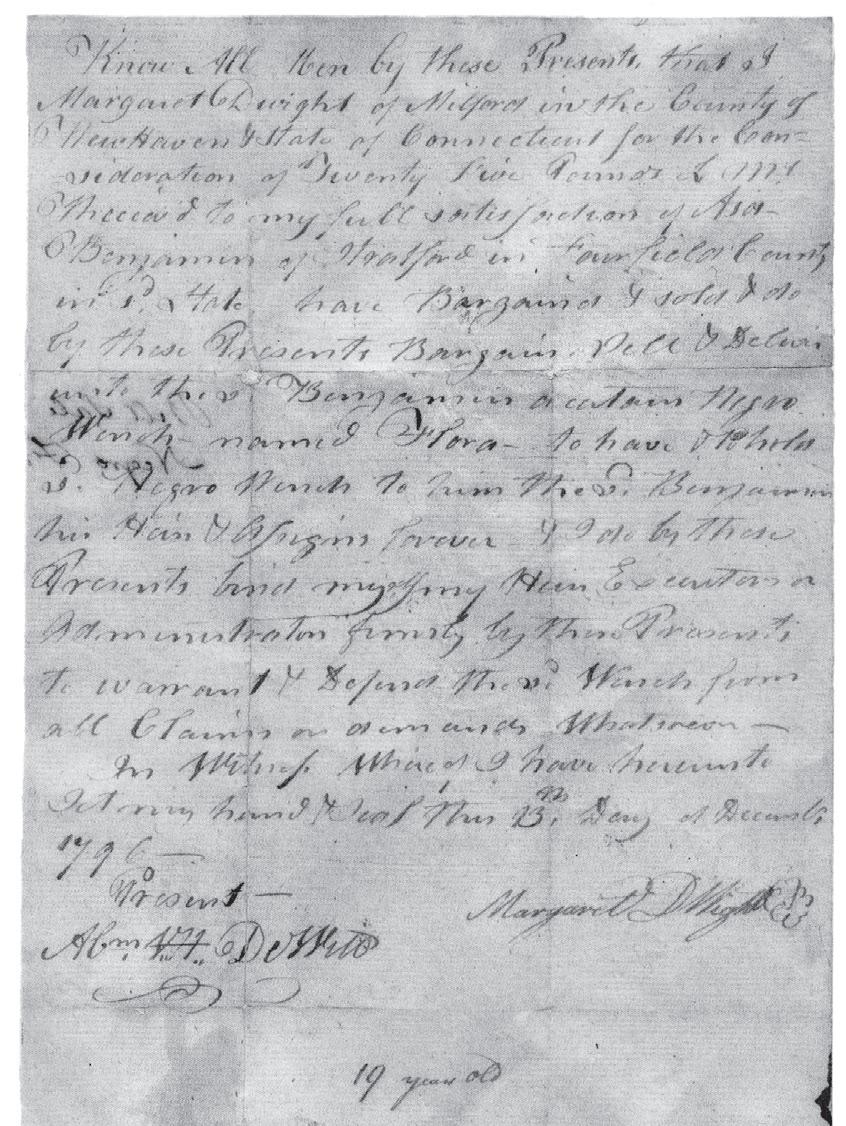 Know All Men by these Presents, that I
Margaret Dwight of Milford in the County of
New Haven & State of Connecticut for the Con=
=sideration of Twenty Five Pounds L My
Receiv'd to my full satisfaction of Asa-
Benjamin of Stratford in Fairfield County
in sd. State have Bargaind & sold & do
by these Presents Bargain Sell & Deliver
unto the sd. Benjamin a certain Negro
Wench named Flora- to have & to hold
sd. Negro Wench to him the sd. Benjamin
his Heirs & Assigns forever & I do by these
Presents bind myself my Heirs Executors or
Administrators firmly by these Presents
to warrant & Defend the sd. Wench from
all Claims or demands Whatsoever —
In Witness Whereof I have hereunto
Set my hand & Seal this 13th. Day of Decembr.
1796 —
Present —
Margaret DWight
Abm. DeWitt
19 years old